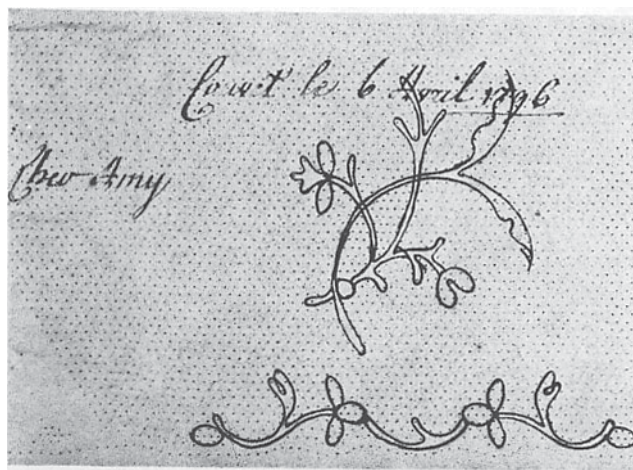 Cowt le 6 Avril 1796
Cher Amy